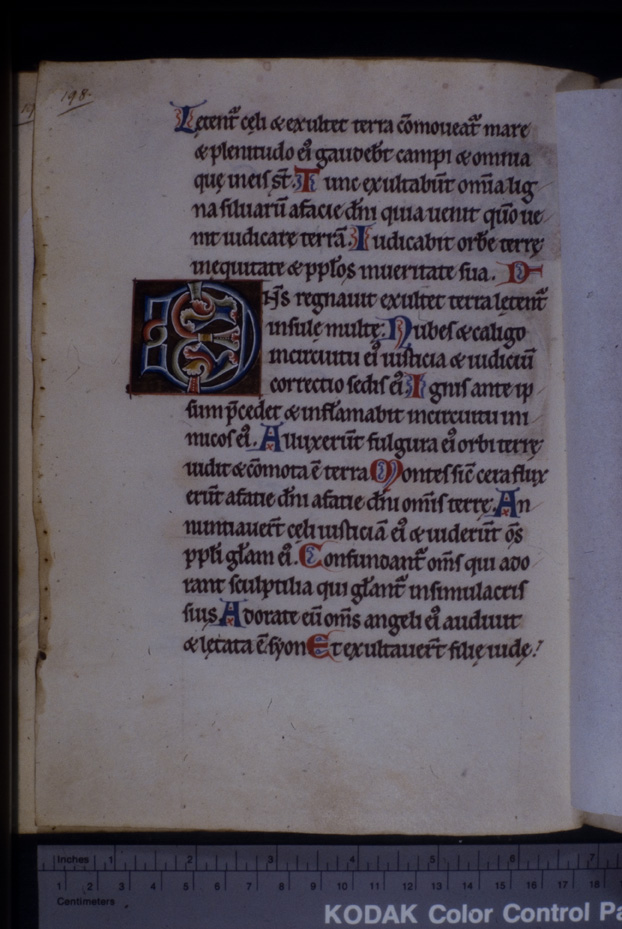 198.
Letent᷑ cęli & exultet terra cōmoueat᷑ mare
& plenitudo ei᷒ gaudeb̄t campi & omnia
quę ineis s̄t. Tunc exultabūt om̄ia lig
na siluarū afacie dn̄i quia uenit qūo ue
nit iudicare terrā. Iudicabit orbē terrę
inequitate & pp̄los inueritate sua. D
N̄S regnauit exultet terra lętent᷑
insulę multę. Nubes & caligo
incircuitu ei᷒ iusticia & iudiciū
correctio sedis ei᷒. Ignis ante ip
sum p̄cedet & inflāmabit incircuitu ini
micos ei᷒. Alluxerūt fulgura ei᷒ orbi terrę
uidit & cōmota ē terra Montes sic̄ cera flux
erūt afacie dn̄i afacie dn̄i om̄is terrę. An
nuntiauer̄t cęli iusticiā ei᷒ & uiderūt oēs
ppl̄i gl̄am ei᷒. Confundant᷑ om̄s qui ado
rant sculptilia qui gl̄ant᷑ insimulacris
suis Adorate eū om̄s angeli ei᷒ audiuit
& lętata ē syon Et exultauer̄t filię iudę.
Inches 1 2 3 4 5 6 7
1 2 3 4 5 6 7 8 9 10 11 12 13 14 15 16 17 18
Centimeters
KODAK Color Control Pa